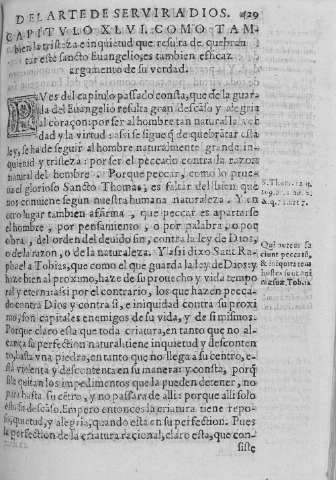 DEL ARTE DE SERVIR A DIOS. 429
CAPITVLO XLVI. COMO TAM-
bien la tristeza e inquietud que resulta de quebran
tar este sancto Euangelio, es tambien efficaz
argumento de su verdad.
PVes del capitulo passado consta, que de la guar
da del Euangelio resulta gran descãso y alegria
al coraçon: por ser al hombre tan natural la ver
dad y la virtud: assi se sigue q̃ de quebrãtar esta
ley, se ha de seguir al hombre naturalmente grande in-
quietud y tristeza: por ser el peccado contra la razon
natural del hombre. Porque peccar, como lo prue-
ua el glorioso Sancto Thomas, es faltar del bien que
nos conuiene segun nuestra humana naturaleza. Y en
otro lugar tambien affirma, que peccar es apartarse
el hombre, por pensamiento, o por palabra, o por
obra, del orden del deuido fin, contra la ley de Dios,
o de la razon, o de la naturaleza. Y lasi dixo Sant Ra-
phael a Tobias, que como el que guarda la ley de Dios: y
haze bien al proximo, haze de su prouecho y vida tempo
ral y eterna: assi por el contrario, los que hazen pecca-
do contra Dios y contra si, e iniquidad contra su proxi
mo, son capitales enemigos de su vida, y de si mismos.
Porque claro esta que toda criatura, en tanto que no al-
cança su perfection natural: tiene inquietud y desconten
to, hasta vna piedra, en tanto que no llega a su centro, e-
sta violenta y descontenta en su manera: y consta, porq̃
si le quitan los impedimentos que la pueden detener, no
para hasta su cẽtro, y no passara de alli: porque alli solo
esta su descãso. Empero entonces la criatura tiene repo-
so, quietud, y alegria, quando esta en su perfection. Pues
la perfection de la criatura racional, claro esta, que con-
siste
S. Thom. 1. 2. q.
Qui autem fa
ciunt peccatũ,
& iniquitatem
hostes sunt ani
mæ suæ. Tobiæ